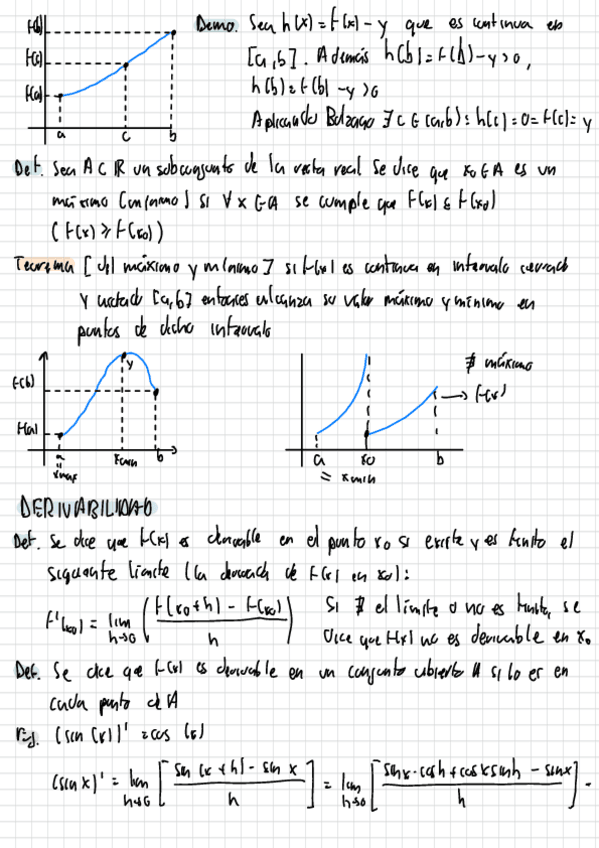 f(b)
f(c)
f(a)
a c b
Demo. Sea h(x) = f(x) - y que es continua en
[a,b]. Además h(b) = f(b) - y > 0,
h(b) = f(b) - y > 0
Aplicando Bolzano ∃ c ∈ (a,b) : h(c) = 0 = f(c) = y
Def. Sea A ⊂ ℝ un subconjunto de la recta real se dice que x₀ ∈ A es un
máximo (mínimo) si ∀ x ∈ A se cumple que f(x) ≤ f(x₀)
(f(x) ≥ f(x₀))
Teorema [del máximo y mínimo] si f(x) es continua en intervalo cerrado
y acotado [a,b] entonces alcanza su valor máximo y mínimo en
puntos de dicho intervalo
f(b)
f(a)
y
a b
∄ máximo
→ f(x)
a x₀ b
= xmin
DERIVABILIDAD
Def. Se dice que f(x) es derivable en el punto x₀ si existe y es finito el
siguiente límite (la derivada de f(x) en x₀):
f'(x₀) = lim h→0 ( f(x₀+h) - f(x₀) / h ) Si ∄ el límite o no es finito, se
dice que f(x) no es derivable en x₀
Def. Se dice que f(x) es derivable en un conjunto abierto A si lo es en
cada punto de A
Ej. (sen(x))' = cos(x)
(sin x)' = lim h→0 [ sin(x+h) - sin x / h ] = lim h→0 [ sin x · cosh + cos x sinh - sin x / h ] =